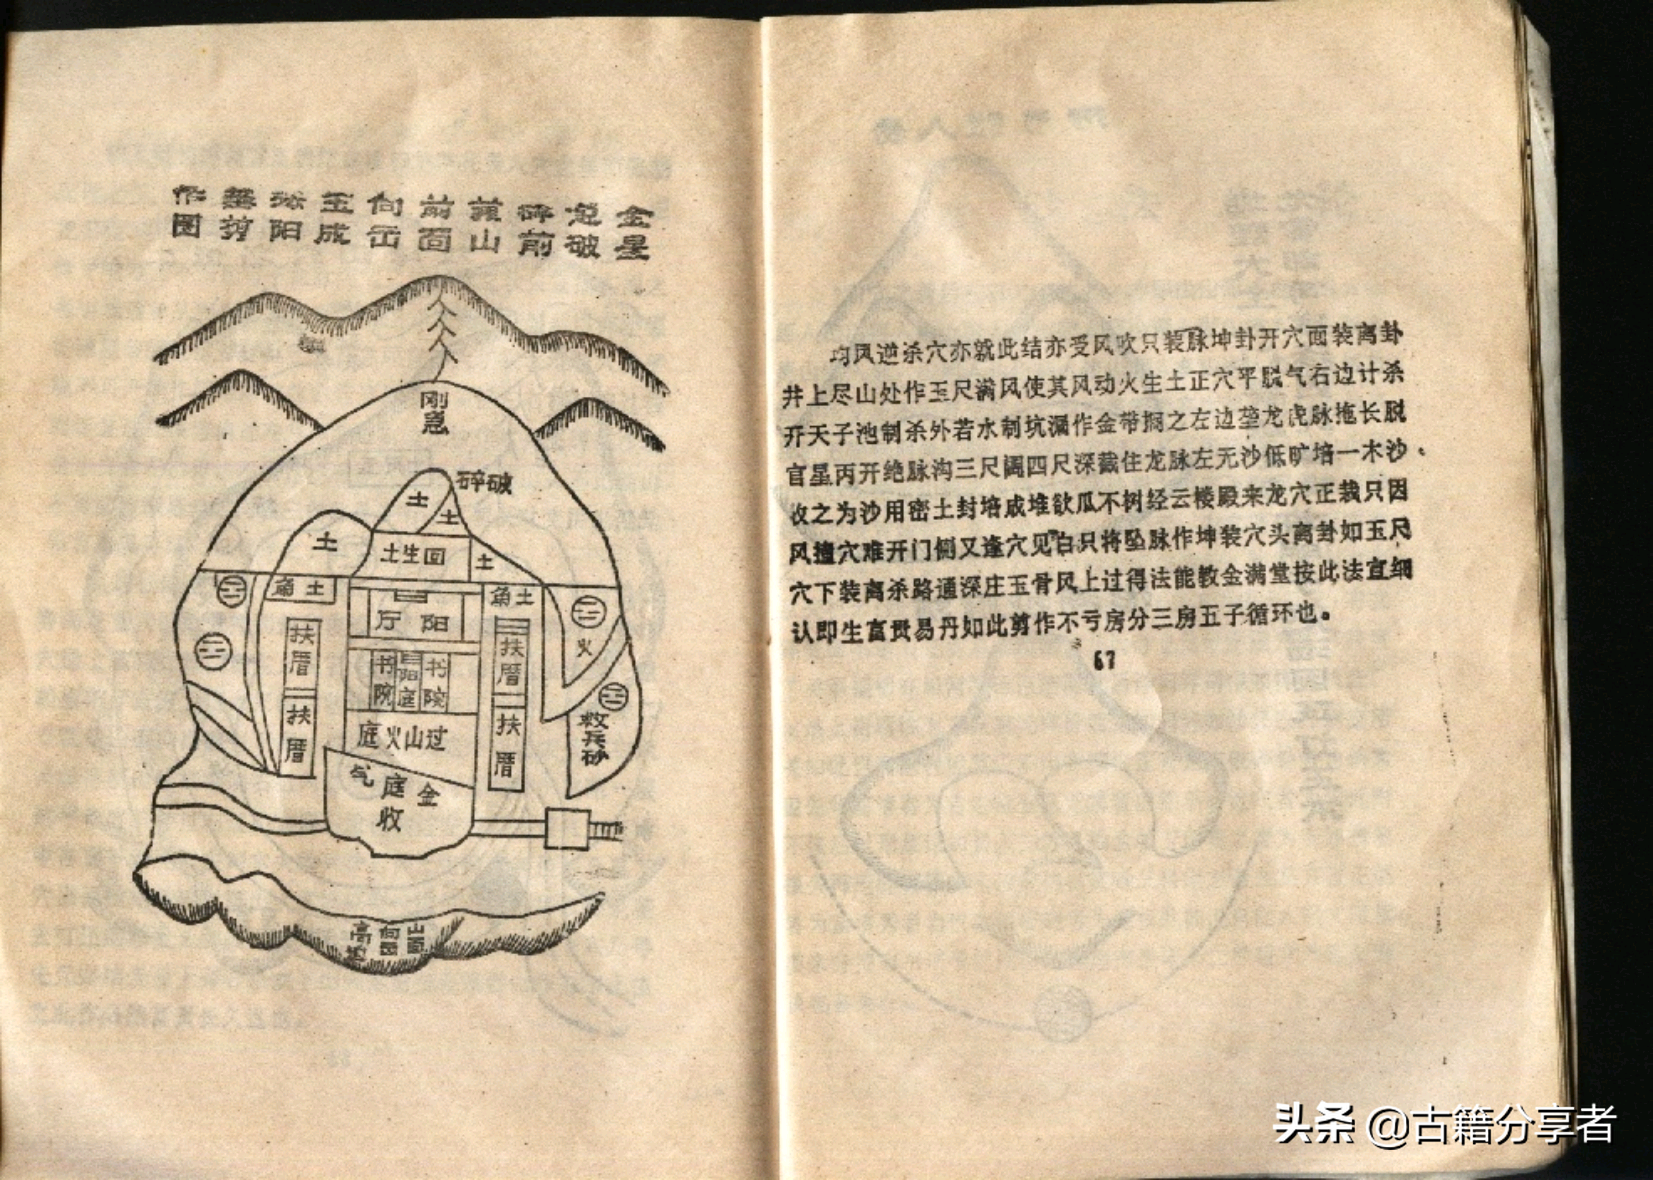 金急碎黄前向玉珍基作
星破前山面缶成阳剪图
刚急
碎破
土
土
土
土生回
土
角土
角土
厅阳
火
扶厝
扶厝
书院
阳庭
书院
扶厝
扶厝
救兵砂
过山火庭
气庭金
收
高
向
山面
均风逆杀穴亦就此结亦受风吹只装脉坤卦开穴面装离卦
井上尽山处作玉尺满风使其风动火生土正穴平脱气右边计杀
开天子池制杀外若水制坑漏作金带捆之左边垄龙虎脉拖长脱
官星丙开绝脉沟三尺阔四尺深截住龙脉左无沙低旷培一木沙
收之为沙用密土封培成堆欲瓜不树经云楼殿来龙穴正栽只因
风撞穴难开门侧又逢穴见白只将坠脉作坤装穴头离卦如玉尺
穴下装离杀路通深庄玉骨风上过得法能教金满堂按此法宜细
认即生富贵易丹如此剪作不亏房分三房五子循环也。
67
头条 @古籍分享者